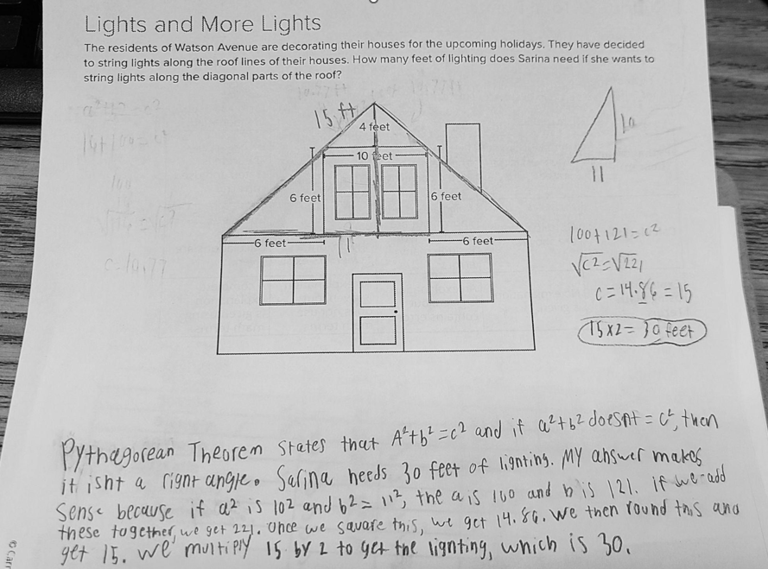 Lights and More Lights
The residents of Watson Avenue are decorating their houses for the upcoming holidays. They have decided
to string lights along the roof lines of their houses. How many feet of lighting does Sarina need if she wants to
string lights along the diagonal parts of the roof?
15 ft
4 feet
10 feet
6 feet
6 feet
6 feet
11
6 feet
10
11
100+121=c2
√c2=√221
c=14.86=15
15x2= 30 feet
Pythagorean Theorem States that A²+b²=c² and if a²+b² doesnt = c², then
it isnt a rignt angle. Sarina needs 30 feet of lignting. My answer makes
sense because if a² is 10² and b²= 11², the a is 100 and b is 121. if we add
these together, we get 221. Once we square this, we get 14.86. We then round this and
get 15. We multiply 15 by 2 to get the lignting, which is 30.